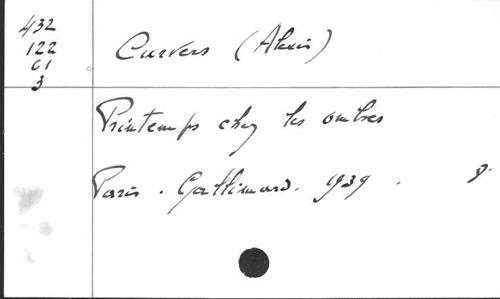 432
122
01
3
Curvers (Alexis)
Printemps chez les ombres
Paris. Gallimard. 1939. 8.